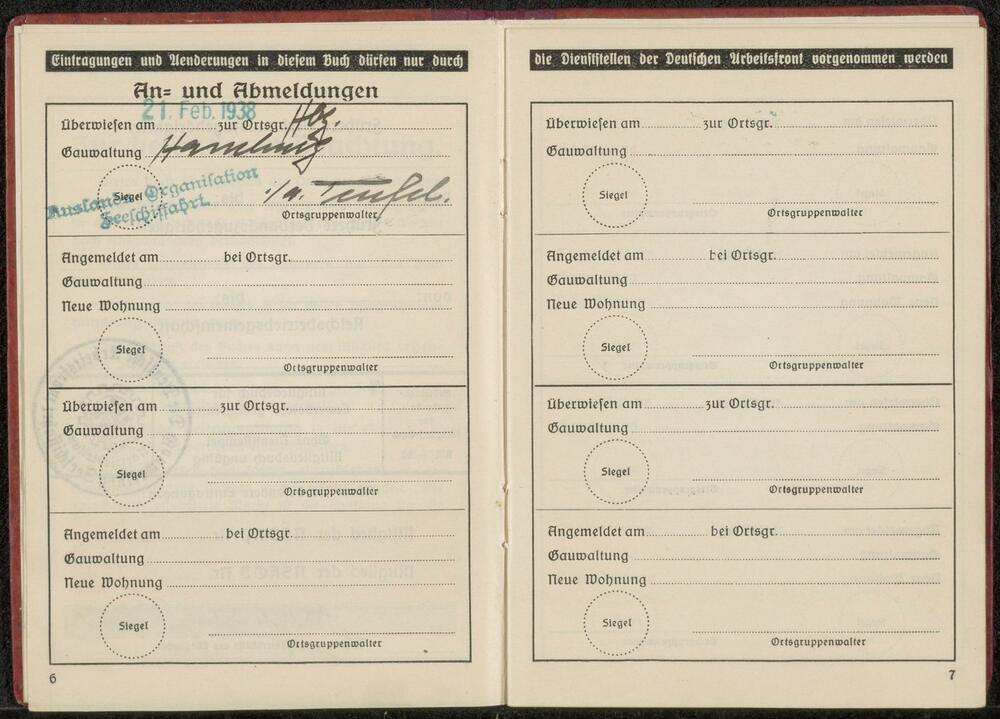 Eintragungen und Aenderungen in diesem Buch dürfen nur durch
An= und Abmeldungen
21. Feb. 1938
Überwiesen am zur Ortsgr. Hbg.
Gauwaltung Hamburg
Siegel
Auslands Organisation
Seeschiffahrt.
i/a. Teufel.
Ortsgruppenwalter
Angemeldet am bei Ortsgr.
Gauwaltung
Neue Wohnung
Siegel
Ortsgruppenwalter
Überwiesen am zur Ortsgr.
Gauwaltung
Siegel
Ortsgruppenwalter
Angemeldet am bei Ortsgr.
Gauwaltung
Neue Wohnung
Siegel
Ortsgruppenwalter
6
die Dienststellen der Deutschen Arbeitsfront vorgenommen werden
Überwiesen am zur Ortsgr.
Gauwaltung
Siegel
Ortsgruppenwalter
Angemeldet am bei Ortsgr.
Gauwaltung
Neue Wohnung
Siegel
Ortsgruppenwalter
Überwiesen am zur Ortsgr.
Gauwaltung
Siegel
Ortsgruppenwalter
Angemeldet am bei Ortsgr.
Gauwaltung
Neue Wohnung
Siegel
Ortsgruppenwalter
7